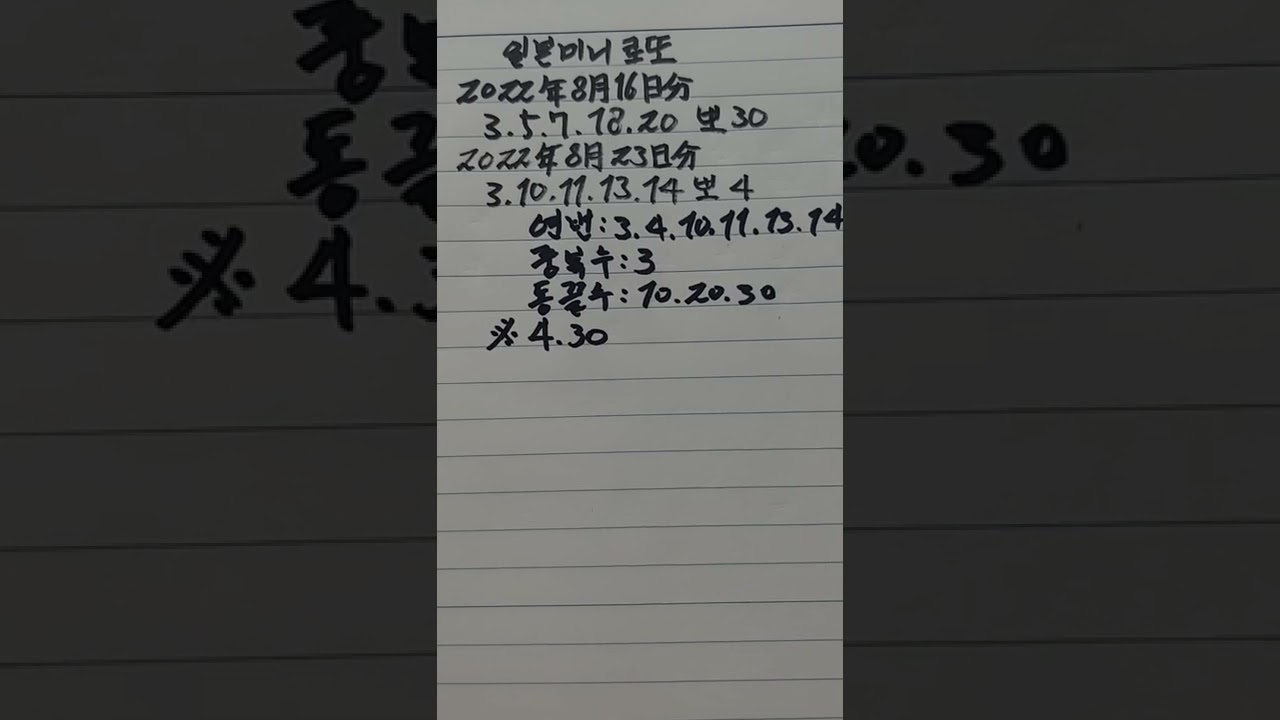 일본미니 로또
2022年8月16日分
3.5.7.18.20 뽀 30
2022年8月23日分
3.10.11.13.14 뽀 4
연번:3.4.10.11.13.14
중복수:3
동끝수:10.20.30
※ 4.30